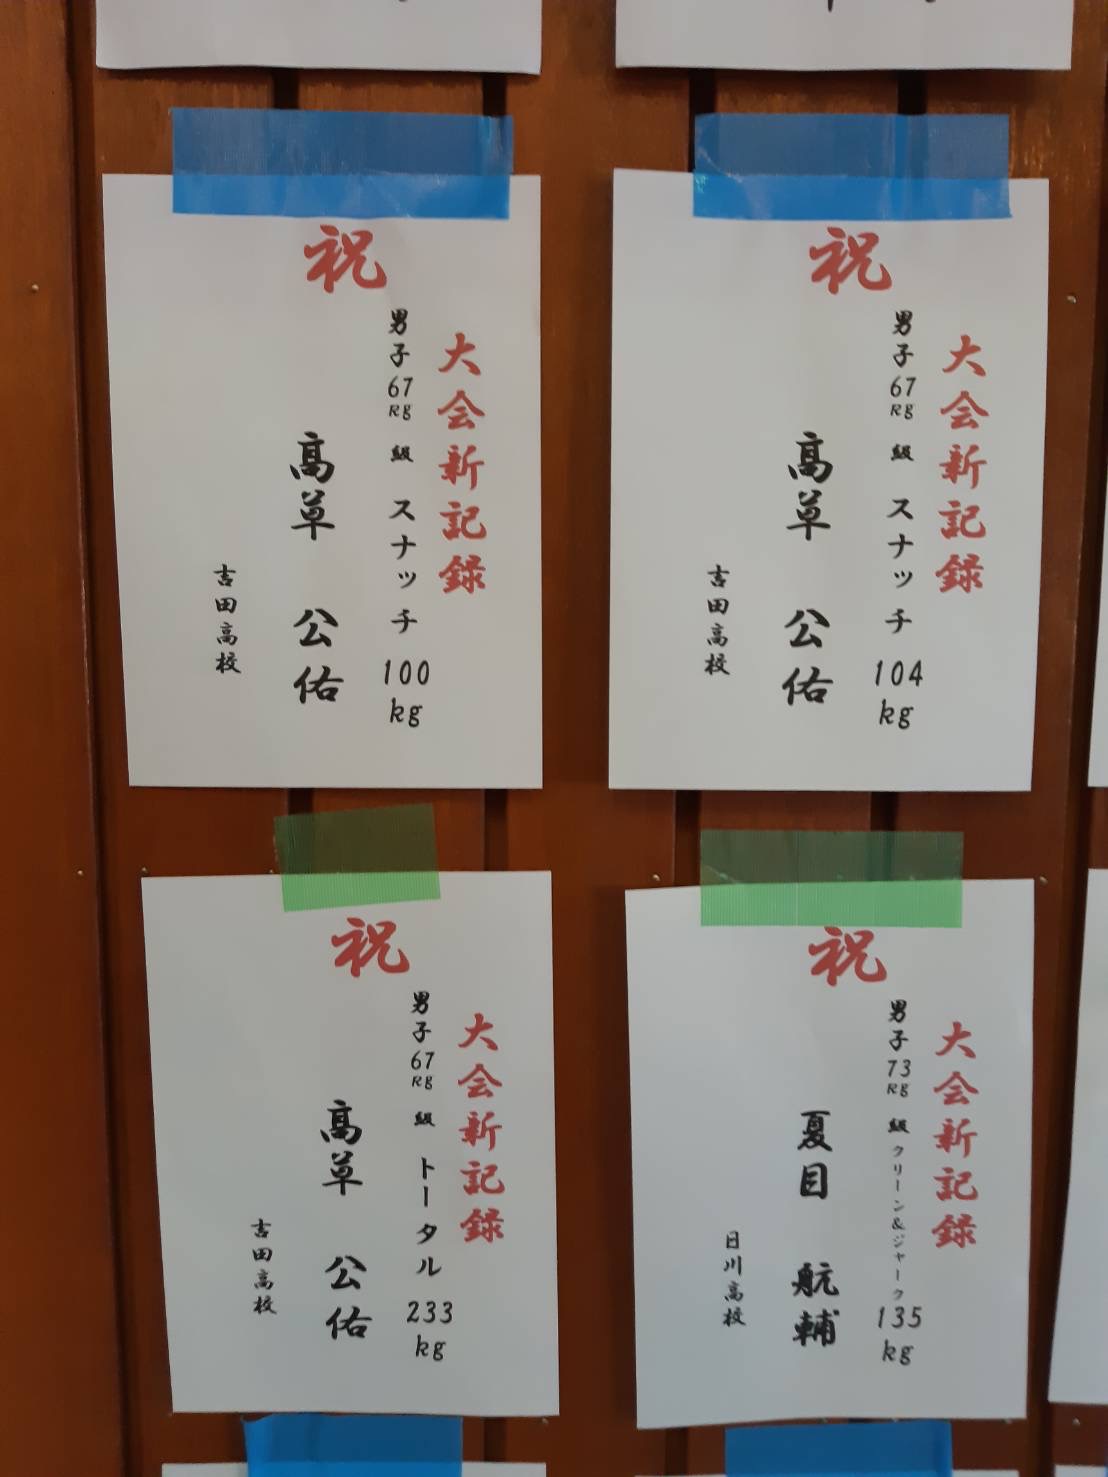 祝
大会新記録
男子67kg級 スナッチ 100kg
髙草 公佑
吉田高校
祝
大会新記録
男子67kg級 スナッチ 104kg
髙草 公佑
吉田高校
祝
大会新記録
男子67kg級 トータル 233kg
髙草 公佑
吉田高校
祝
大会新記録
男子73kg級 クリーン&ジャーク 135kg
夏目 航輔
日川高校